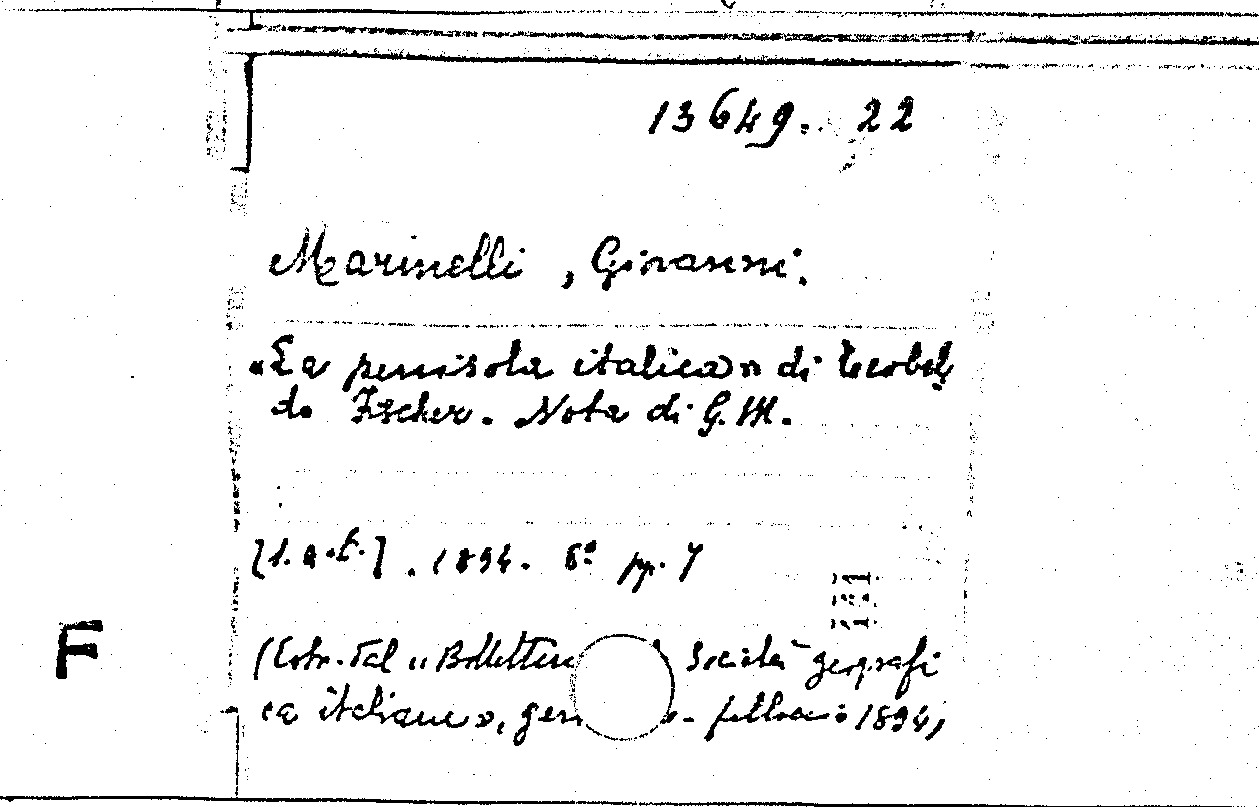 13649. 22
Marinelli, Giovanni.
«La penisola italica» di Teobal
do Fischer. Nota di G. M.
[s. a. t.]. 1894. 8° pp. 7
(Estr. dal «Bollettino Società geografi
ca italiana», gen - febbraio 1894,
F